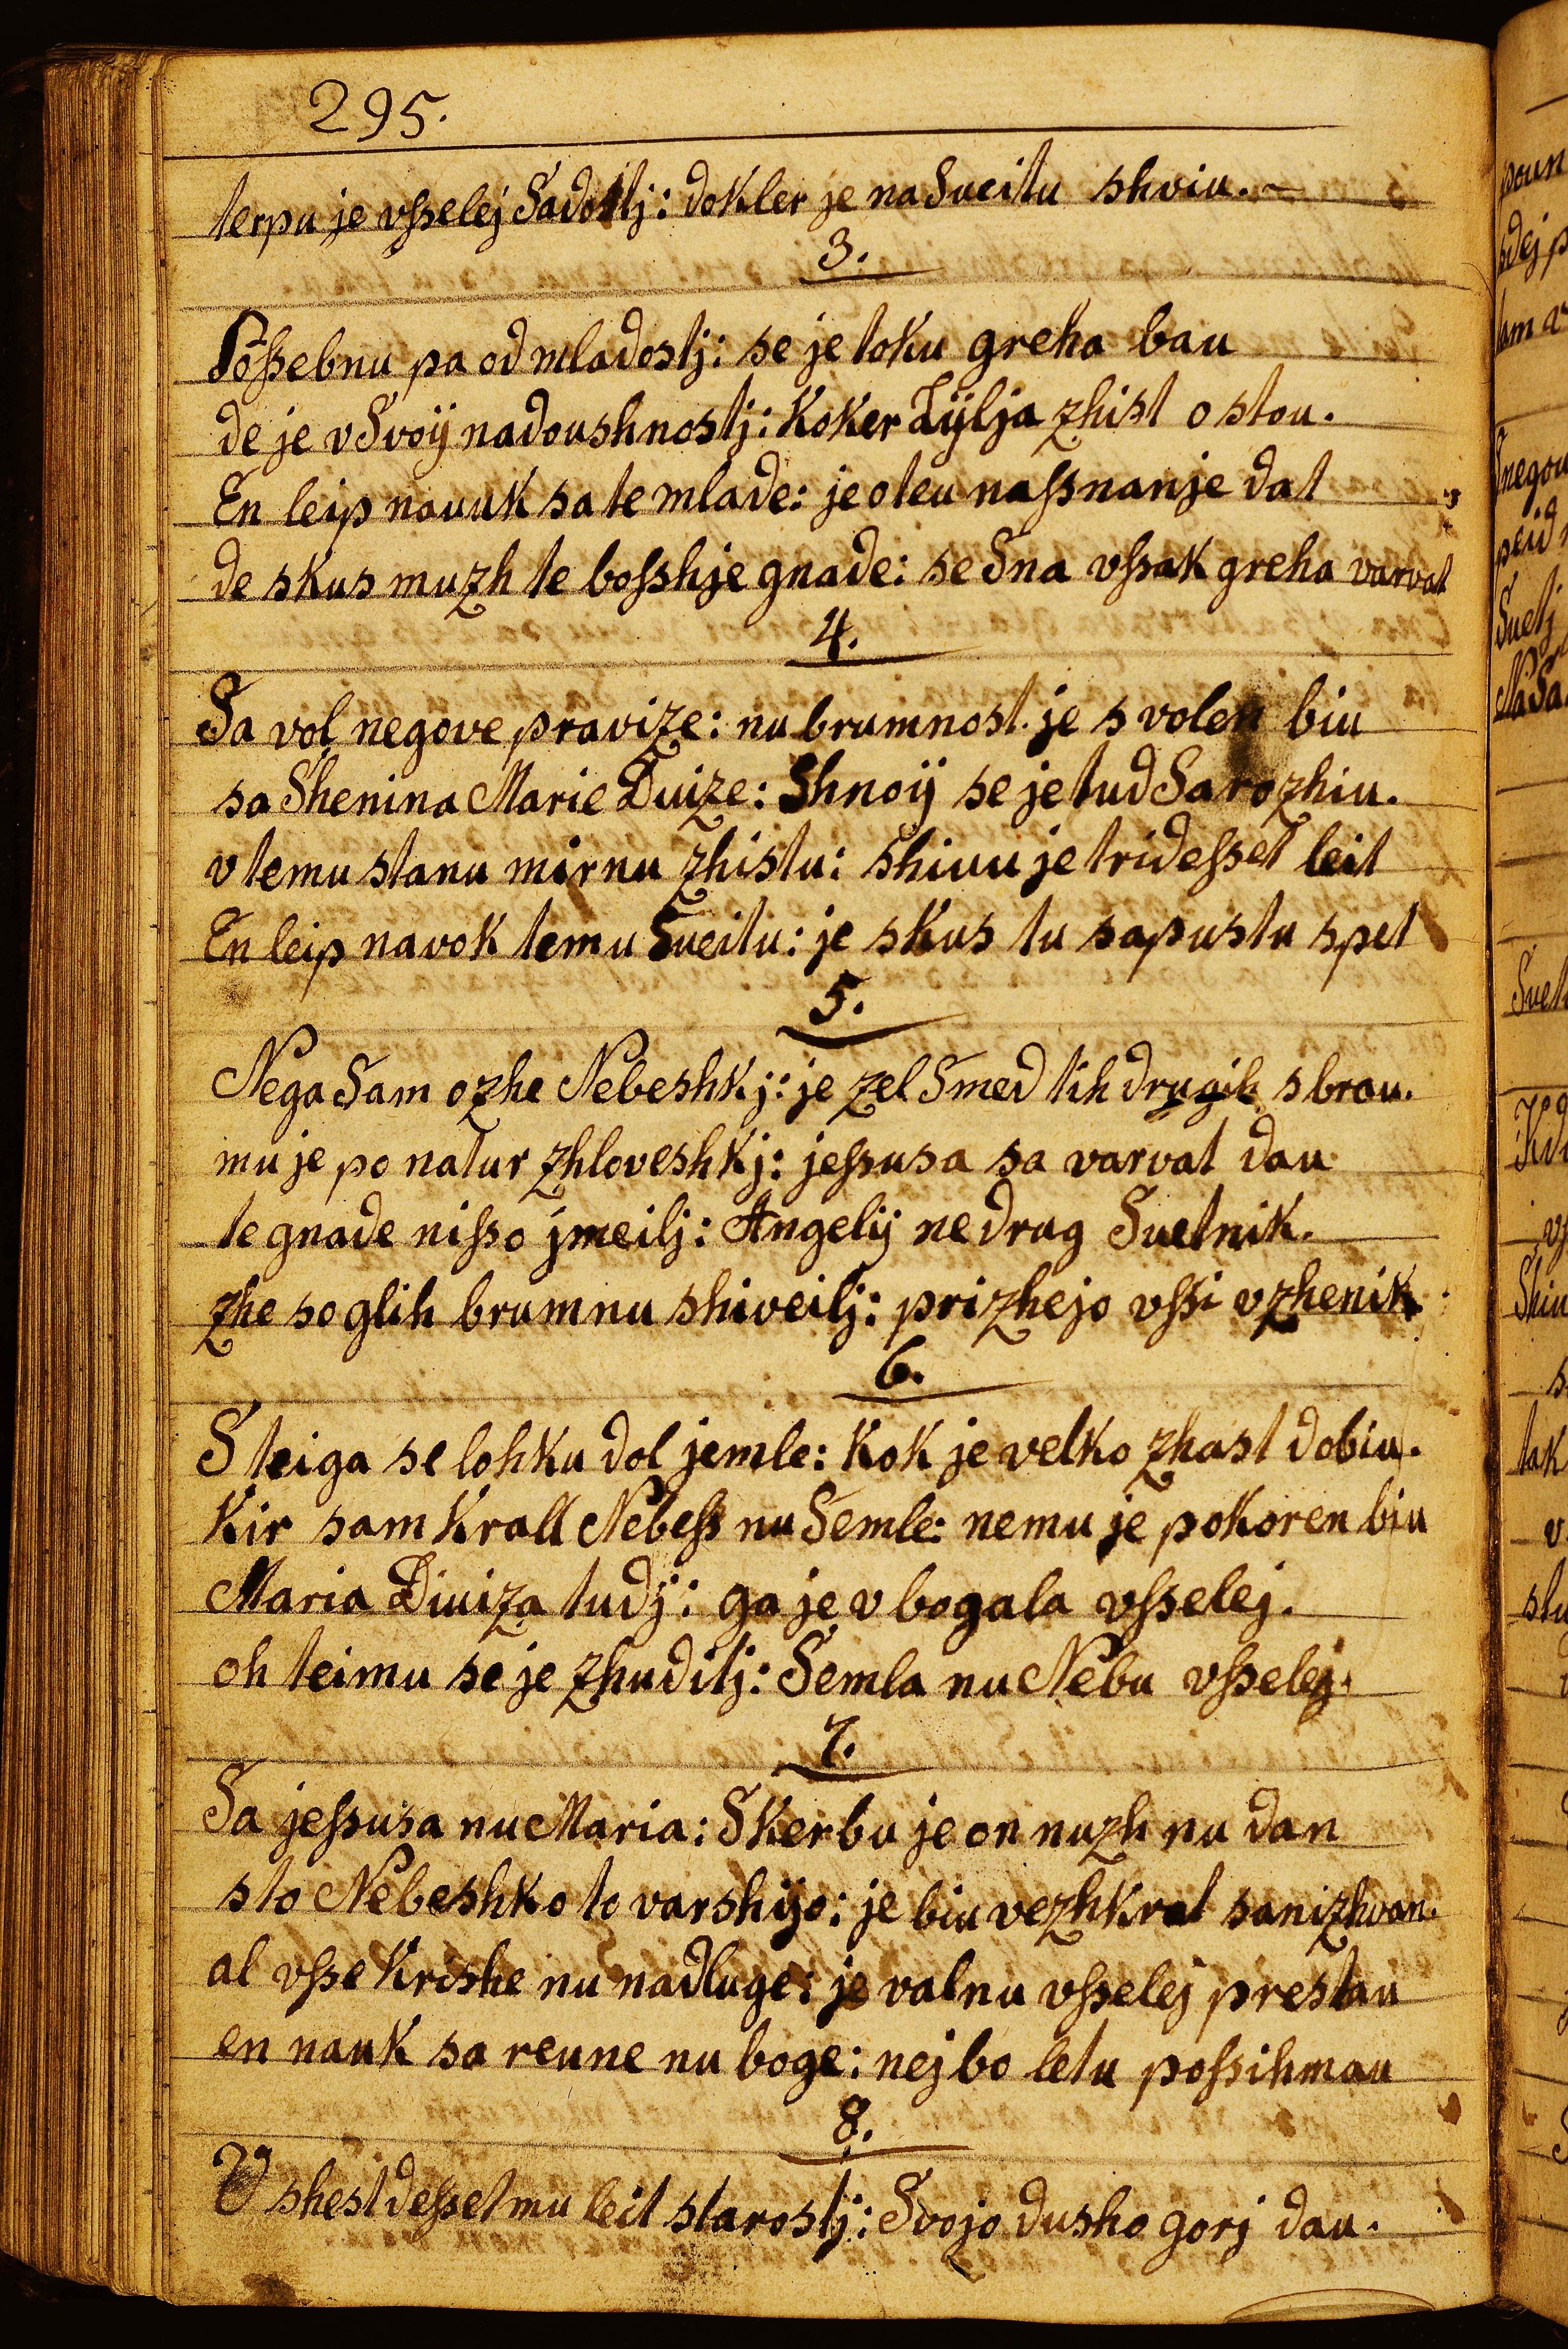 295.
terpu je vſselej Sadostj: dokler je na Sveitu shviu.
3.
Poſsebnu pa od mladostj: se je toku greha bau
de je v Svoÿ nadoushnostj: Koker Lÿlja zhist o stou.
En leip nauuk sa te mlade: je oteu naſsnanje dat
de skus muzh te boſshje gnade: se Sna vſsak greha varvat
4.
Sa vol negove pravize: nu brumnost je s volen biu
sa Shenina Marie Duize: Shnoÿ se je tud Sarozhiu.
v temu stanu mirnu zhistu: shiuu je trideſset leit
En leip navok temu Sueitu: je skus tu sapustu spet
5.
Nega Sam ozhe Nebeshkj: je zel Smed tih drugih sbrau.
mu je po natur zhloveshkj: jeſsusa sa varvat dau
te gnade niſso jmeilj: Angelÿ ne drug Suetnik.
zhe so glih brumnu shiveilj: prizhejo vſsi vzhenik
6.
S teiga se lohku dol jemle: Kok je velko zhast dobiu.
Kir sam Krall Nebeſs nu Semle: nemu je pokoren biu
Maria Diuiza tudj: ga je vbogala vſselej.
oh teimu se je zhudilj: Semla nu Nebu vſselej.
7.
Sa jeſsusa nu Maria: Skerbu je on nuzh nu dan
sto Nebeshko tovarshijo: je biu vezhkrat sanizhvan.
al vſse Krishe nu nadluge: je valnu vſselej prestau
en nauk sa reune nu boge: nej bo letu poſsihmau
8.
V shestdeſsetmu leit starostj: Svojo dusho gorj dau.